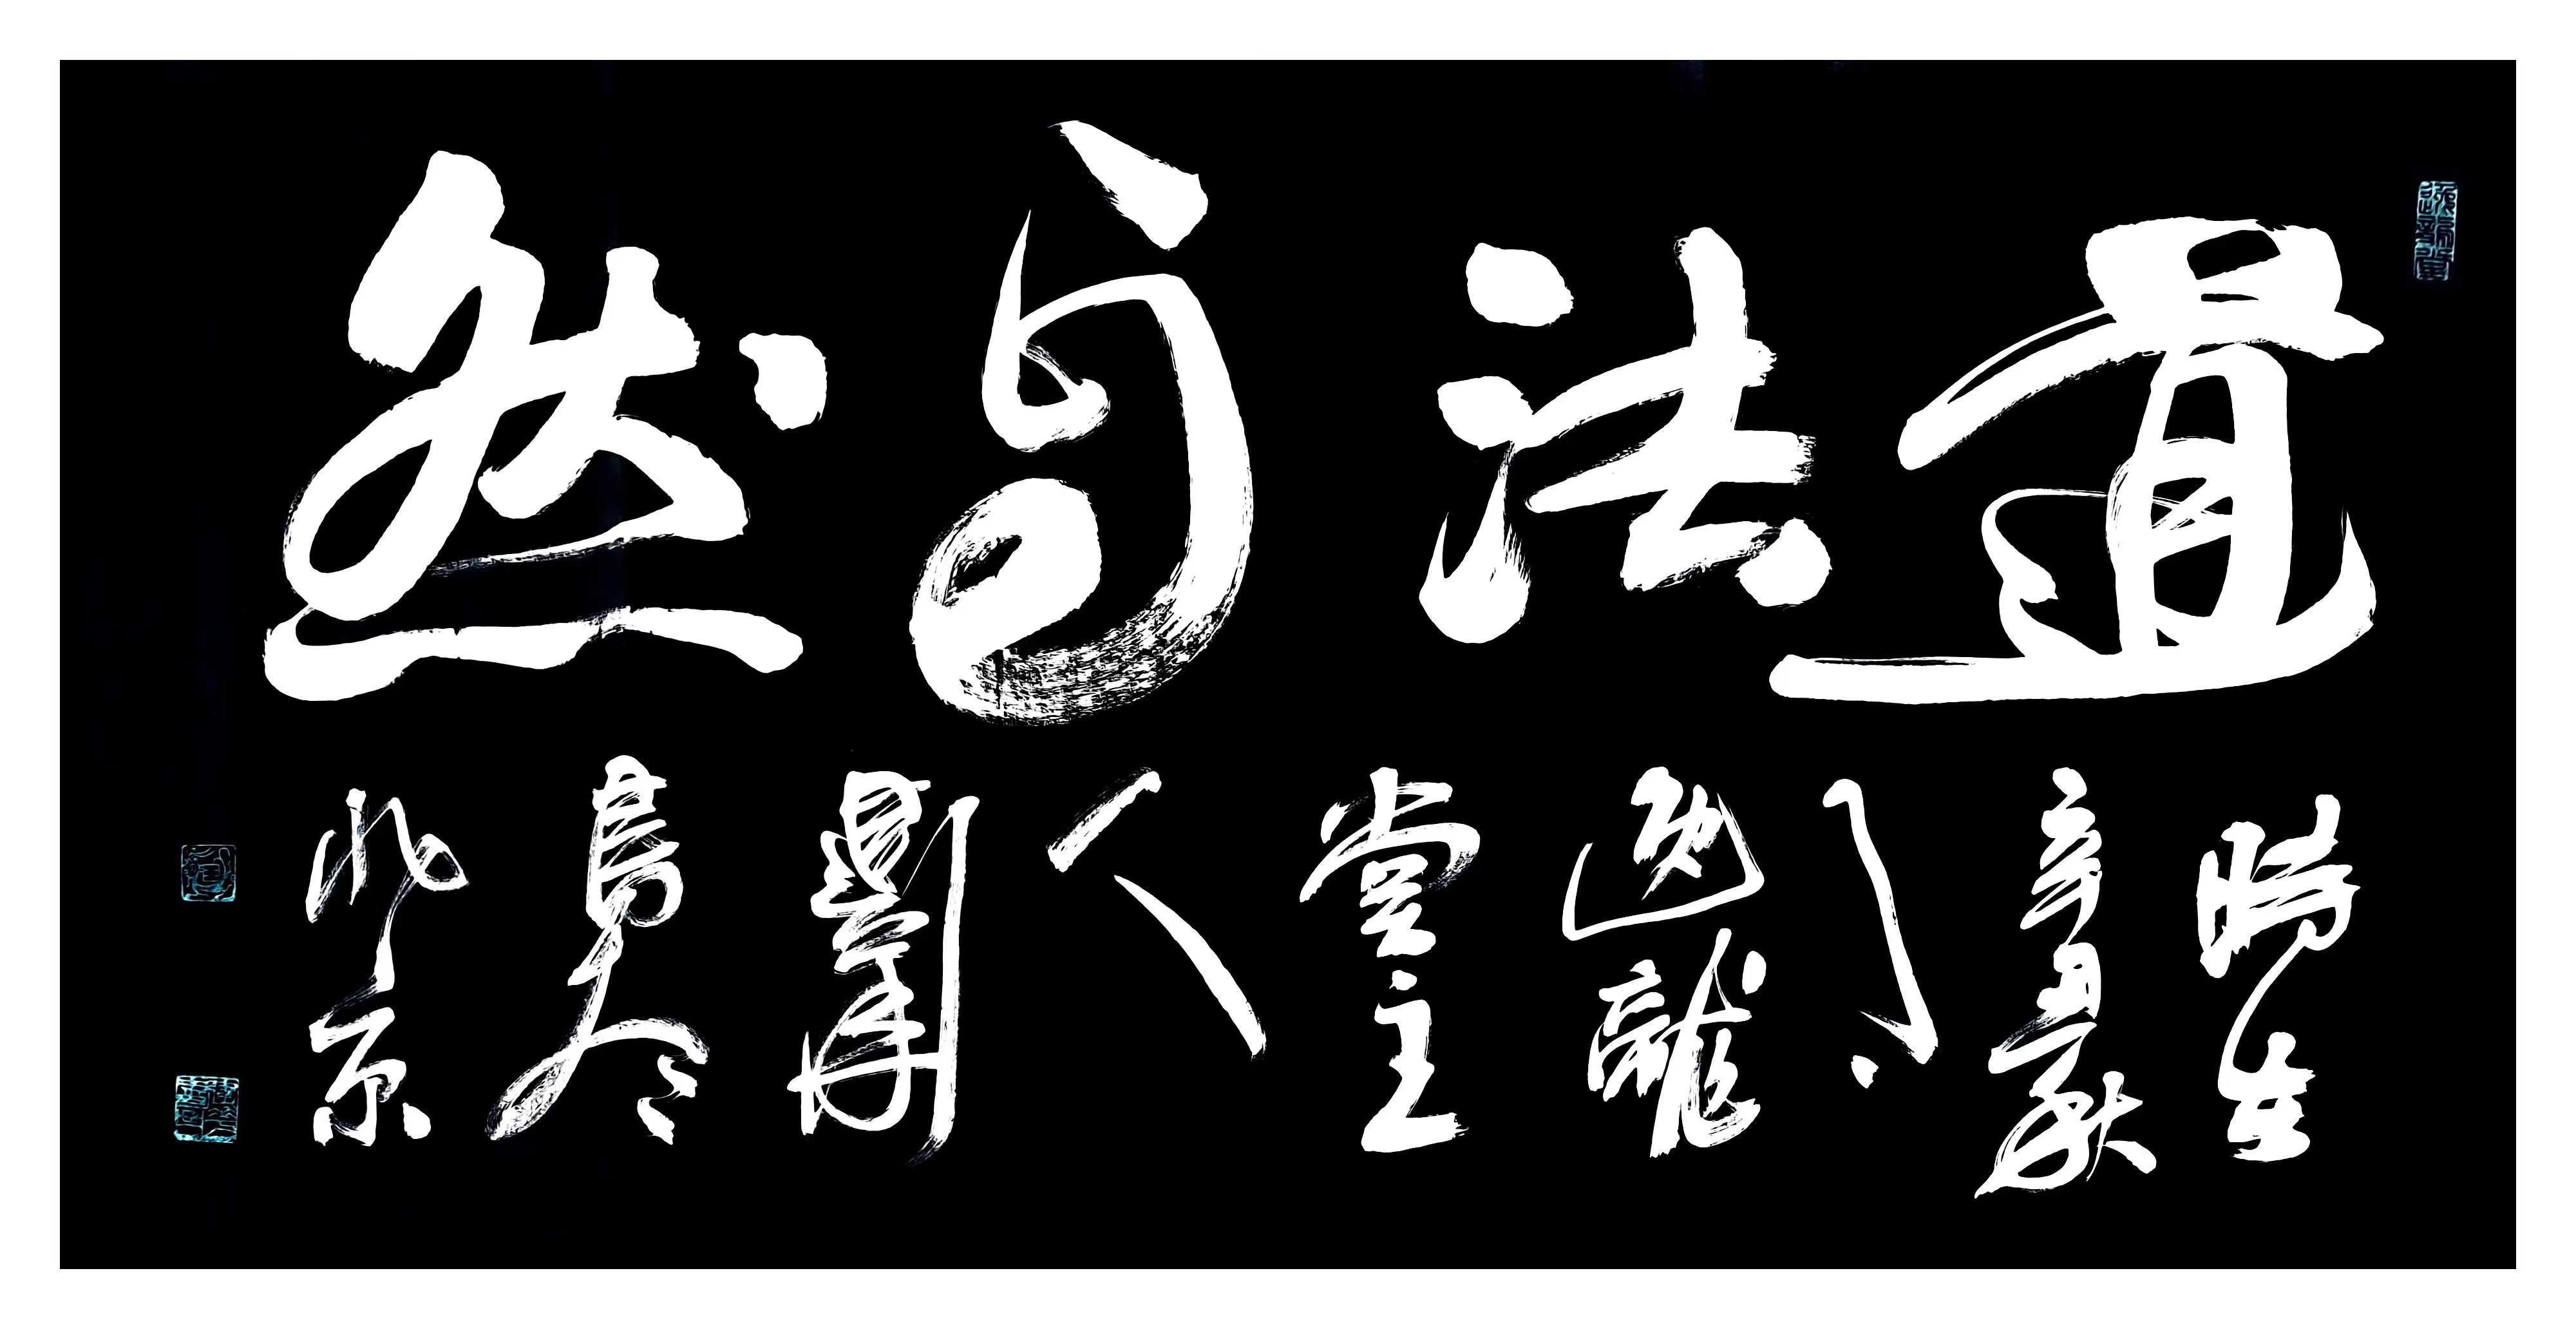 道法自然
時在
辛丑之秋
于
逸龍
堂主
人
劉
景春
北京